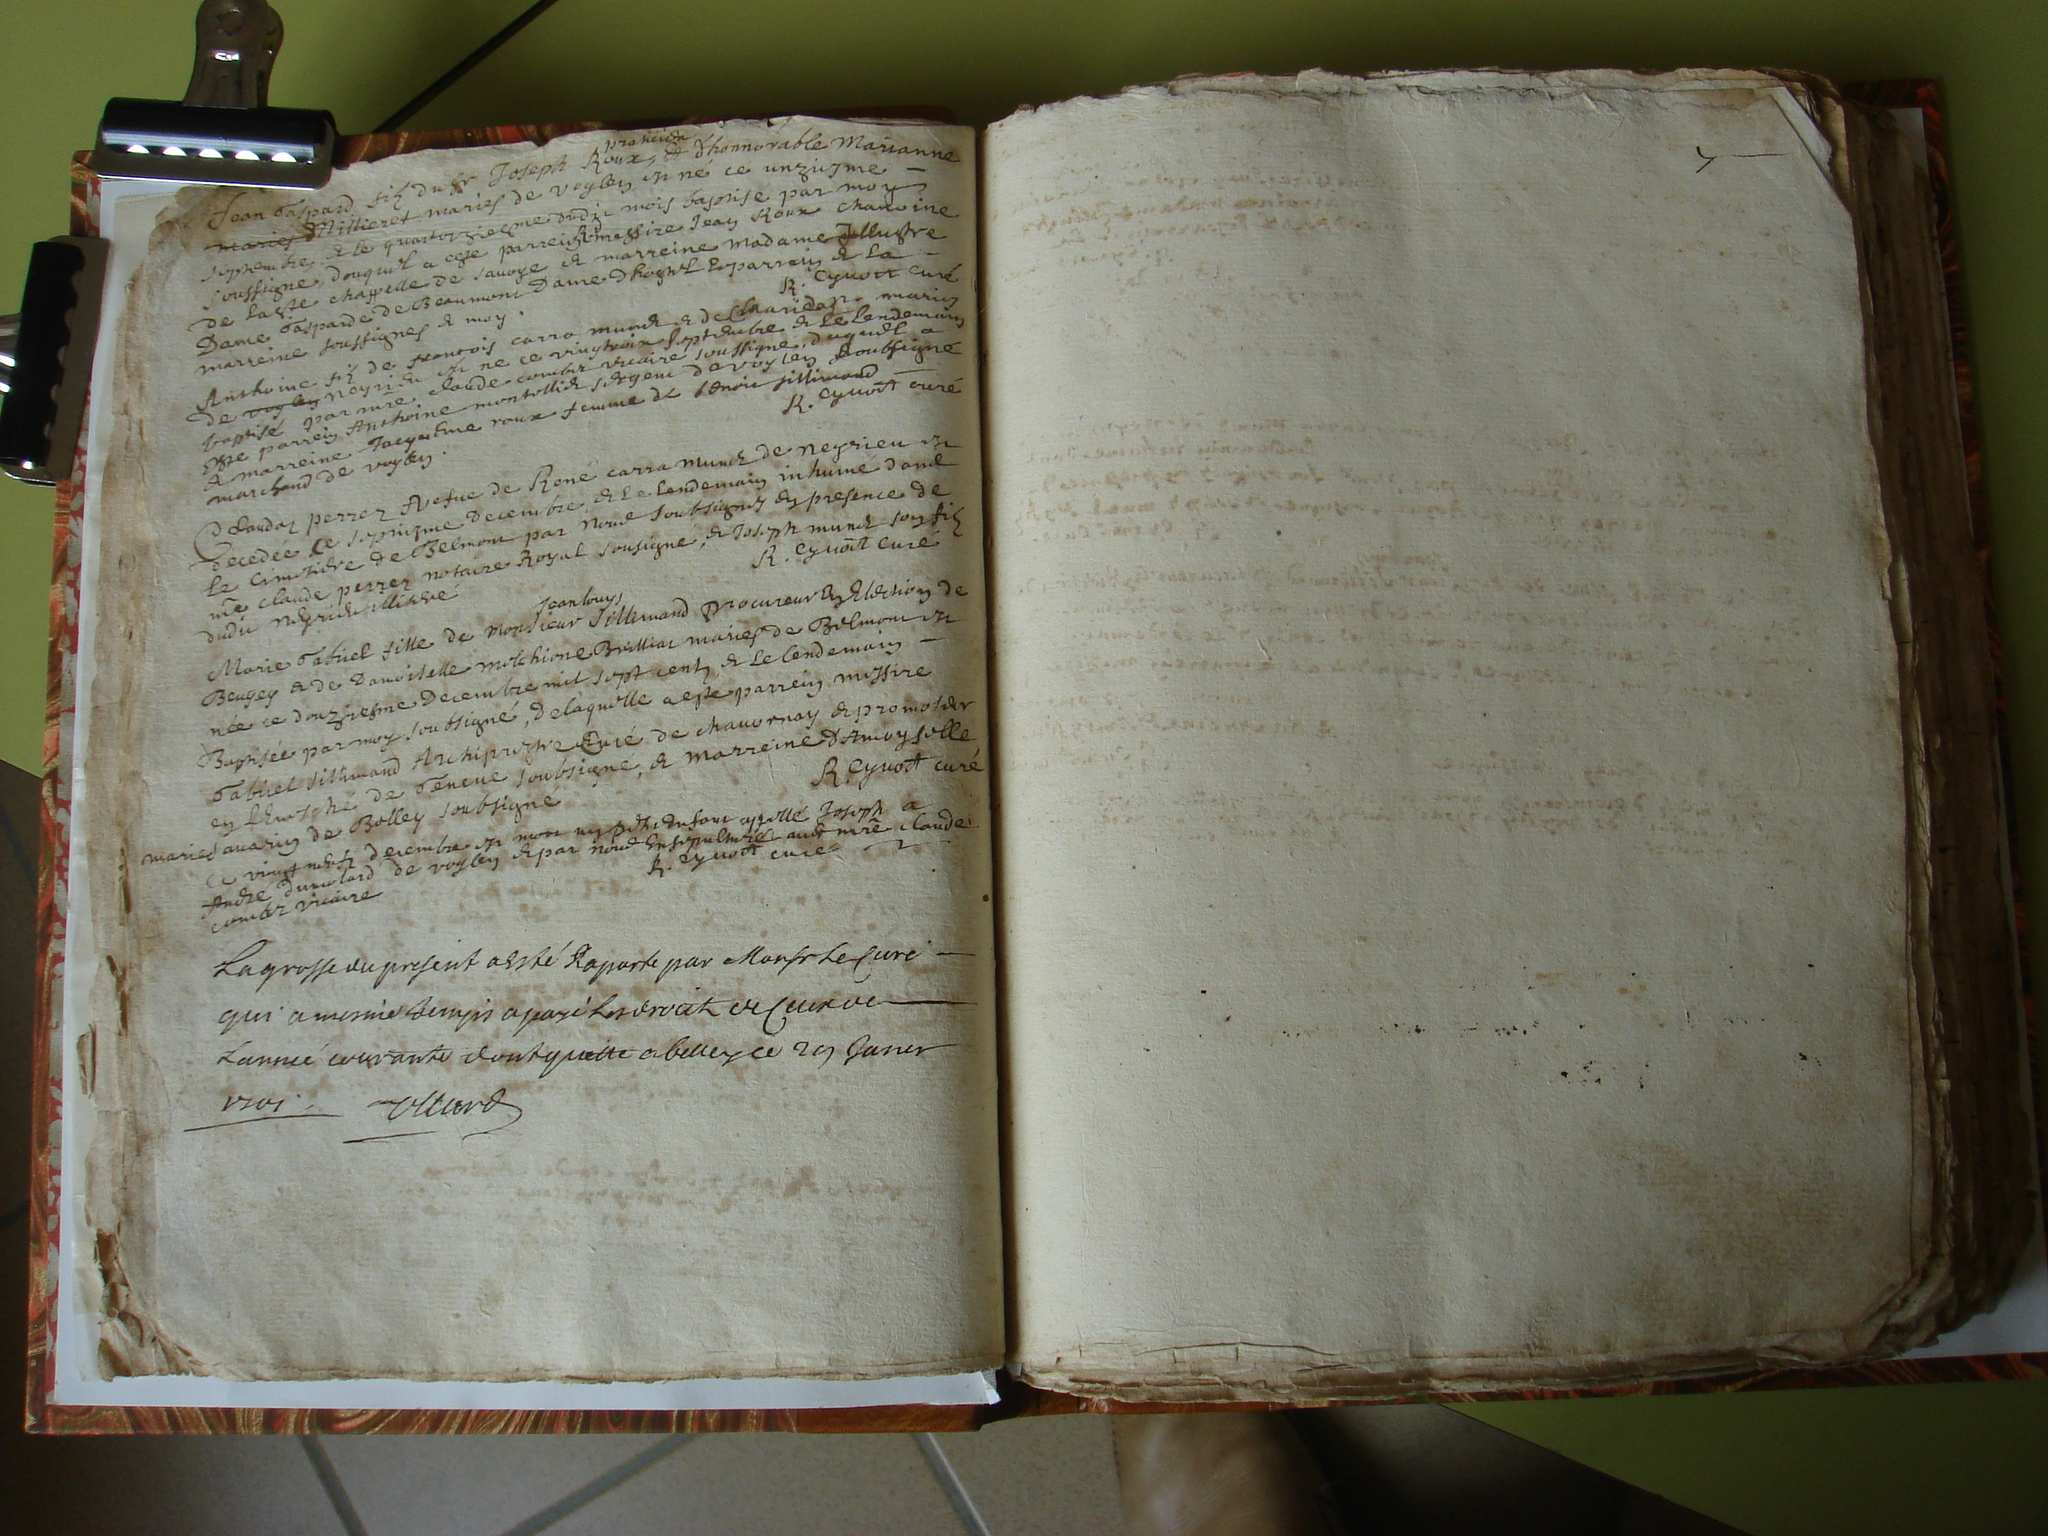 Jean Gaspard fils du Sr Joseph Roux praticien et d'honnorable Marianne
maries Millieret mariés de voglen est né ce unziesme
septembre & le quatorziesme dudit mois baptisé par moy
soussigné, duquel a esté parrein messire Jean Roux chanoine
de la Ste chappelle de savoye & marreine madame Illustre
Dame Gasparde de Beaumont Dame le parrein & la
marreine soussignés & moy. R. Eynott curé
Anthoine fils de françois carra munet & de mariés
de voglen Neyrieu est né ce septembre & le lendemain
baptisé par mre claude combet vicaire soussigné, duquel a
esté parrein Anthoine montollier sergent de voglen soubsigné
& marreine Jacqueline roux femme de benoit sillimand
marchand de voglen. R. Eynott curé
Claudaz perret vefve de René carra munet de neyrieu est
decedée ce septiesme decembre, & le lendemain inhumé dans
le cimetière de Belmont par nous soubsignés en presence de
me claude perret notaire Royal sousigné, & Joseph munet son fils
dudit neyrieu R. Eynott curé
Marie Gabriel fille de monsieur Jean louys Sillimand procureur en Election de
Beugey & de Damoiselle melchione Brilliat mariés de Belmont est
née ce douziesme decembre mil sept cents, & le lendemain
Baptisée par moy soubsigné, de laquelle a esté parrein missire
Gabriel sillimand Archiprestre Curé de chavornay & promoter
en l'Evesché de Geneve soubsigné, & marreine Damoyselle
marie savarin de Belley soubsigné R. Eynott curé
Ce vingt neufz decembre est mort un petit enfant appellé Joseph a
André dumolard de voglen & par nous ensepulturé avec mre claude
combet vicaire R. Eynott curé
La grosse du present a esté Raporté par Monsr Le Curé
qui a mesme temps a payé les droits de
L'année courante dont quitte a belley ce 29 Janer
1701